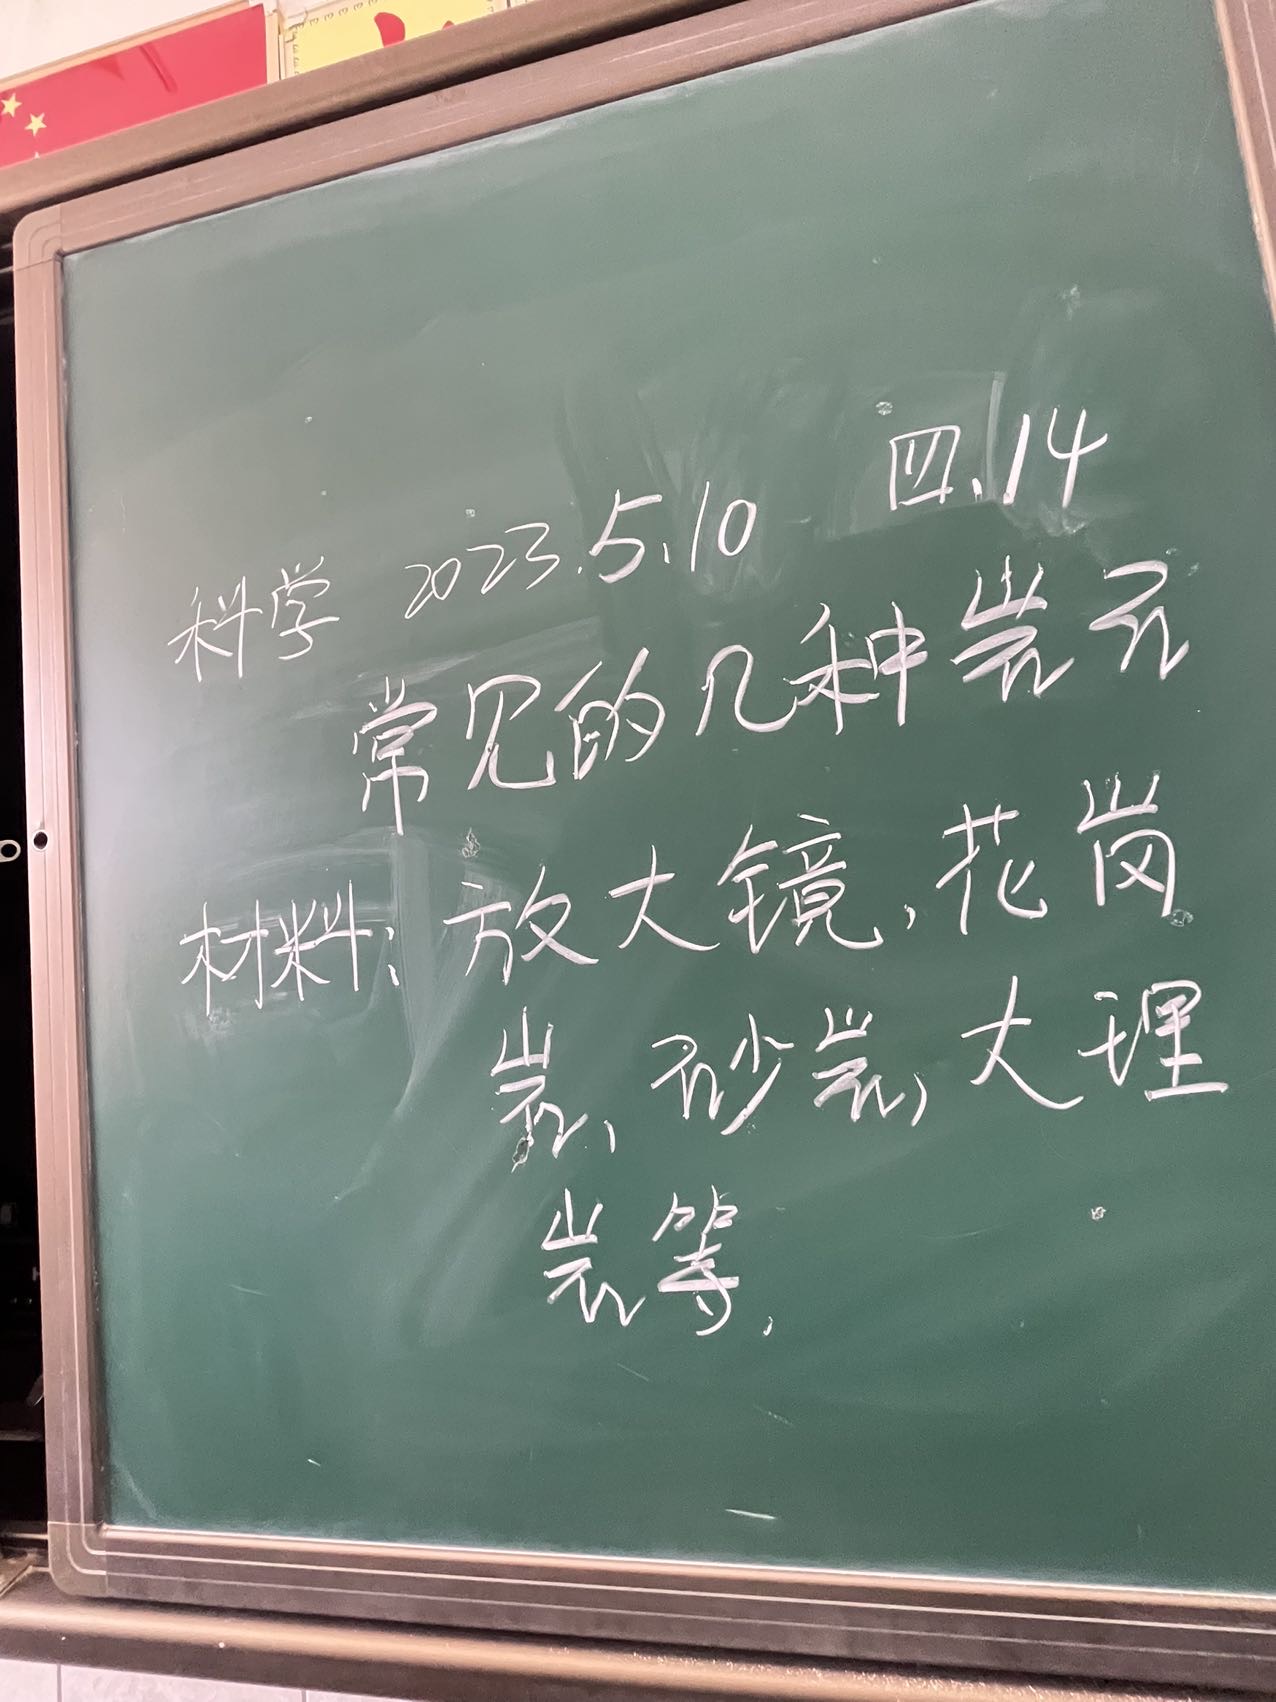 四、14
科学 2023.5.10
常见的几种岩石
材料：放大镜，花岗
岩、砂岩，大理
岩等，